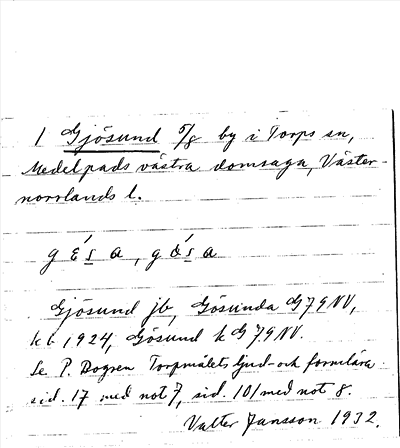 1 Gjösund 5/8 by i Torps sn,
Medelpads västra domsaga, Väster-
norrlands l.
Gjösund jb, Gösunda G79NV,
kb 1924, Gösund k G79NV.
Se P. Bogren Torpmålets ljud- och formlära
sid. 17 med not 7, sid. 101 med not 8.
Valter Jansson 1932.